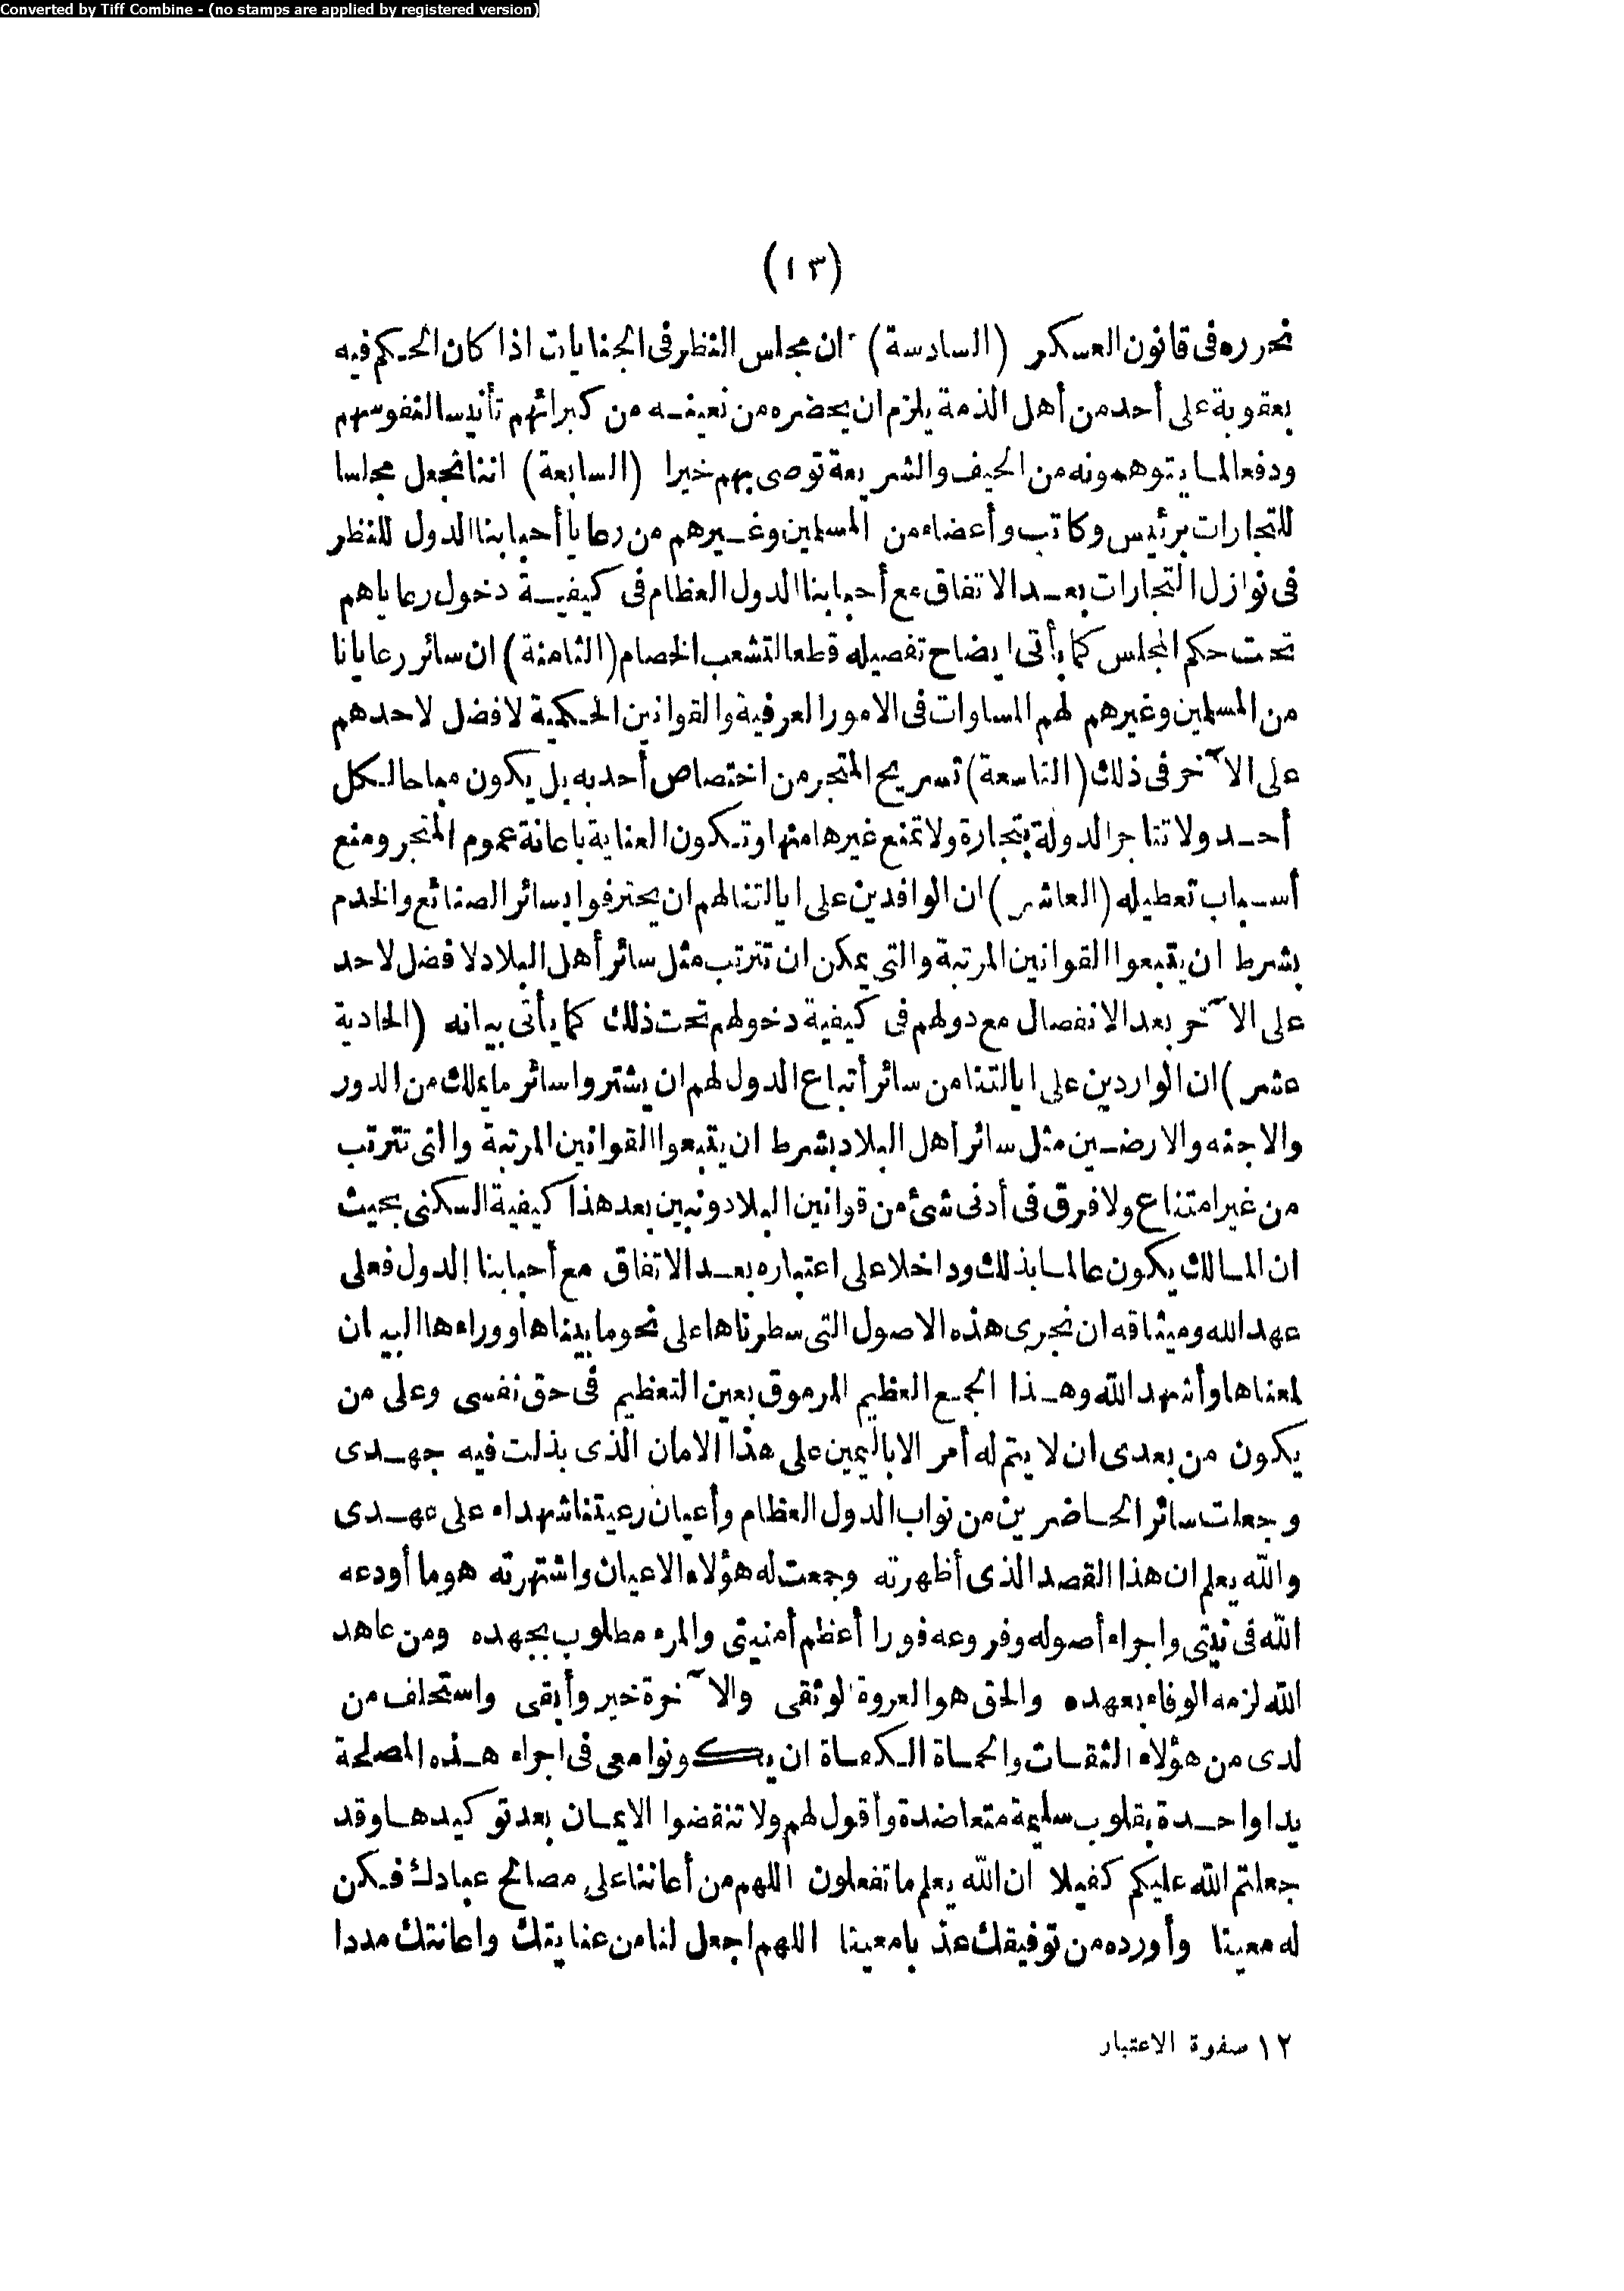 Converted by Tiff Combine - (no stamps are applied by registered version)
(١٣)
نحرره فى قانون العسكر (السادسة) ان مجلس النظر فى الجنايات اذا كان الحكم فيه
بعقوبة على أحد من أهل الذمة يلزم ان يحضره من نعينه من كبرائهم تأنيسا لنفوسهم
ودفعا لما يتوهمونه من الحيف والشريعة توصى بهم خيرا (السابعة) اننا نجعل مجلسا
للتجارات برئيس وكاتب وأعضاء من المسلمين وغيرهم من رعايا أحبابنا الدول للنظر
فى نوازل التجارات بعد الاتفاق مع أحبابنا الدول العظام فى كيفية دخول رعاياهم
تحت حكم المجلس كما يأتى ايضاح تفصيله قطعا لتشعب الخصام (الثامنة) ان سائر رعايانا
من المسلمين وغيرهم لهم المساوات فى الامور العرفية والقوانين الحكمية لا فضل لاحدهم
على الآخر فى ذلك (التاسعة) تسريح المتجر من اختصاص أحد به بل يكون مباحا لكل
أحد ولا تتاجر الدولة بتجارة ولا تمنع غيرها منها وتكون العناية باعانة عموم المتجر ومنع
أسباب تعطيله (العاشر) ان الوافدين على ايالتنا لهم ان يحترفوا بسائر الصنائع والخدم
بشرط ان يتبعوا القوانين المرتبة والتي يمكن ان تترتب مثل سائر أهل البلاد لا فضل لاحد
على الآخر بعد الانفصال مع دولهم فى كيفية دخولهم تحت ذلك كما يأتى بيانه (الحادية
عشر) ان الواردين على ايالتنا من سائر أتباع الدول لهم ان يشتروا سائر ما يملك من الدور
والاجنه والارضين مثل سائر أهل البلاد بشرط ان يتبعوا القوانين المرتبة والتى تترتب
من غير امتناع ولا فرق فى أدنى شئ من قوانين البلاد ونبين بعد هذا كيفية السكنى بحيث
ان المالك يكون عالما بذلك وداخلا على اعتباره بعد الاتفاق مع أحبابنا الدول فعلى
عهد الله وميثاقه ان نجرى هذه الاصول التى سطرناها على نحو ما بيناها ووراءها البيان
لمعناها وأشهد الله وهذا الجمع العظيم المرموق بعين التعظيم فى حق نفسى وعلى من
يكون من بعدى ان لا يتم له أمر الا باليمين على هذا الامان الذى بذلت فيه جهدى
وجعلت سائر الحاضرين من نواب الدول العظام وأعيان رعيتنا شهداء على عهدى
والله يعلم ان هذا القصد الذى أظهرته وجمعت له هؤلاء الاعيان واشتهرته هو ما أودعه
الله فى نيتى واجراء أصوله وفروعه فورا أعظم أمنيتى والمرء مطلوب بجهده ومن عاهد
الله لزمه الوفاء بعهده والحق هو العروة الوثقى والآخرة خير وأبقى واستحلف من
لدى من هؤلاء الثقات والحماة الكفاة ان يكونوا معى فى اجراء هذه المصلحة
يدا واحدة بقلوب سليمة متعاضدة وأقول لهم ولا تنقضوا الايمان بعد توكيدها وقد
جعلتم الله عليكم كفيلا ان الله يعلم ما تفعلون اللهم من أعاننا على مصالح عبادك فكن
له معينا وأورده من توفيقك عذبا معينا اللهم اجعل لنا من عنايتك واعانتك مددا
١٢ صفوة الاعتبار